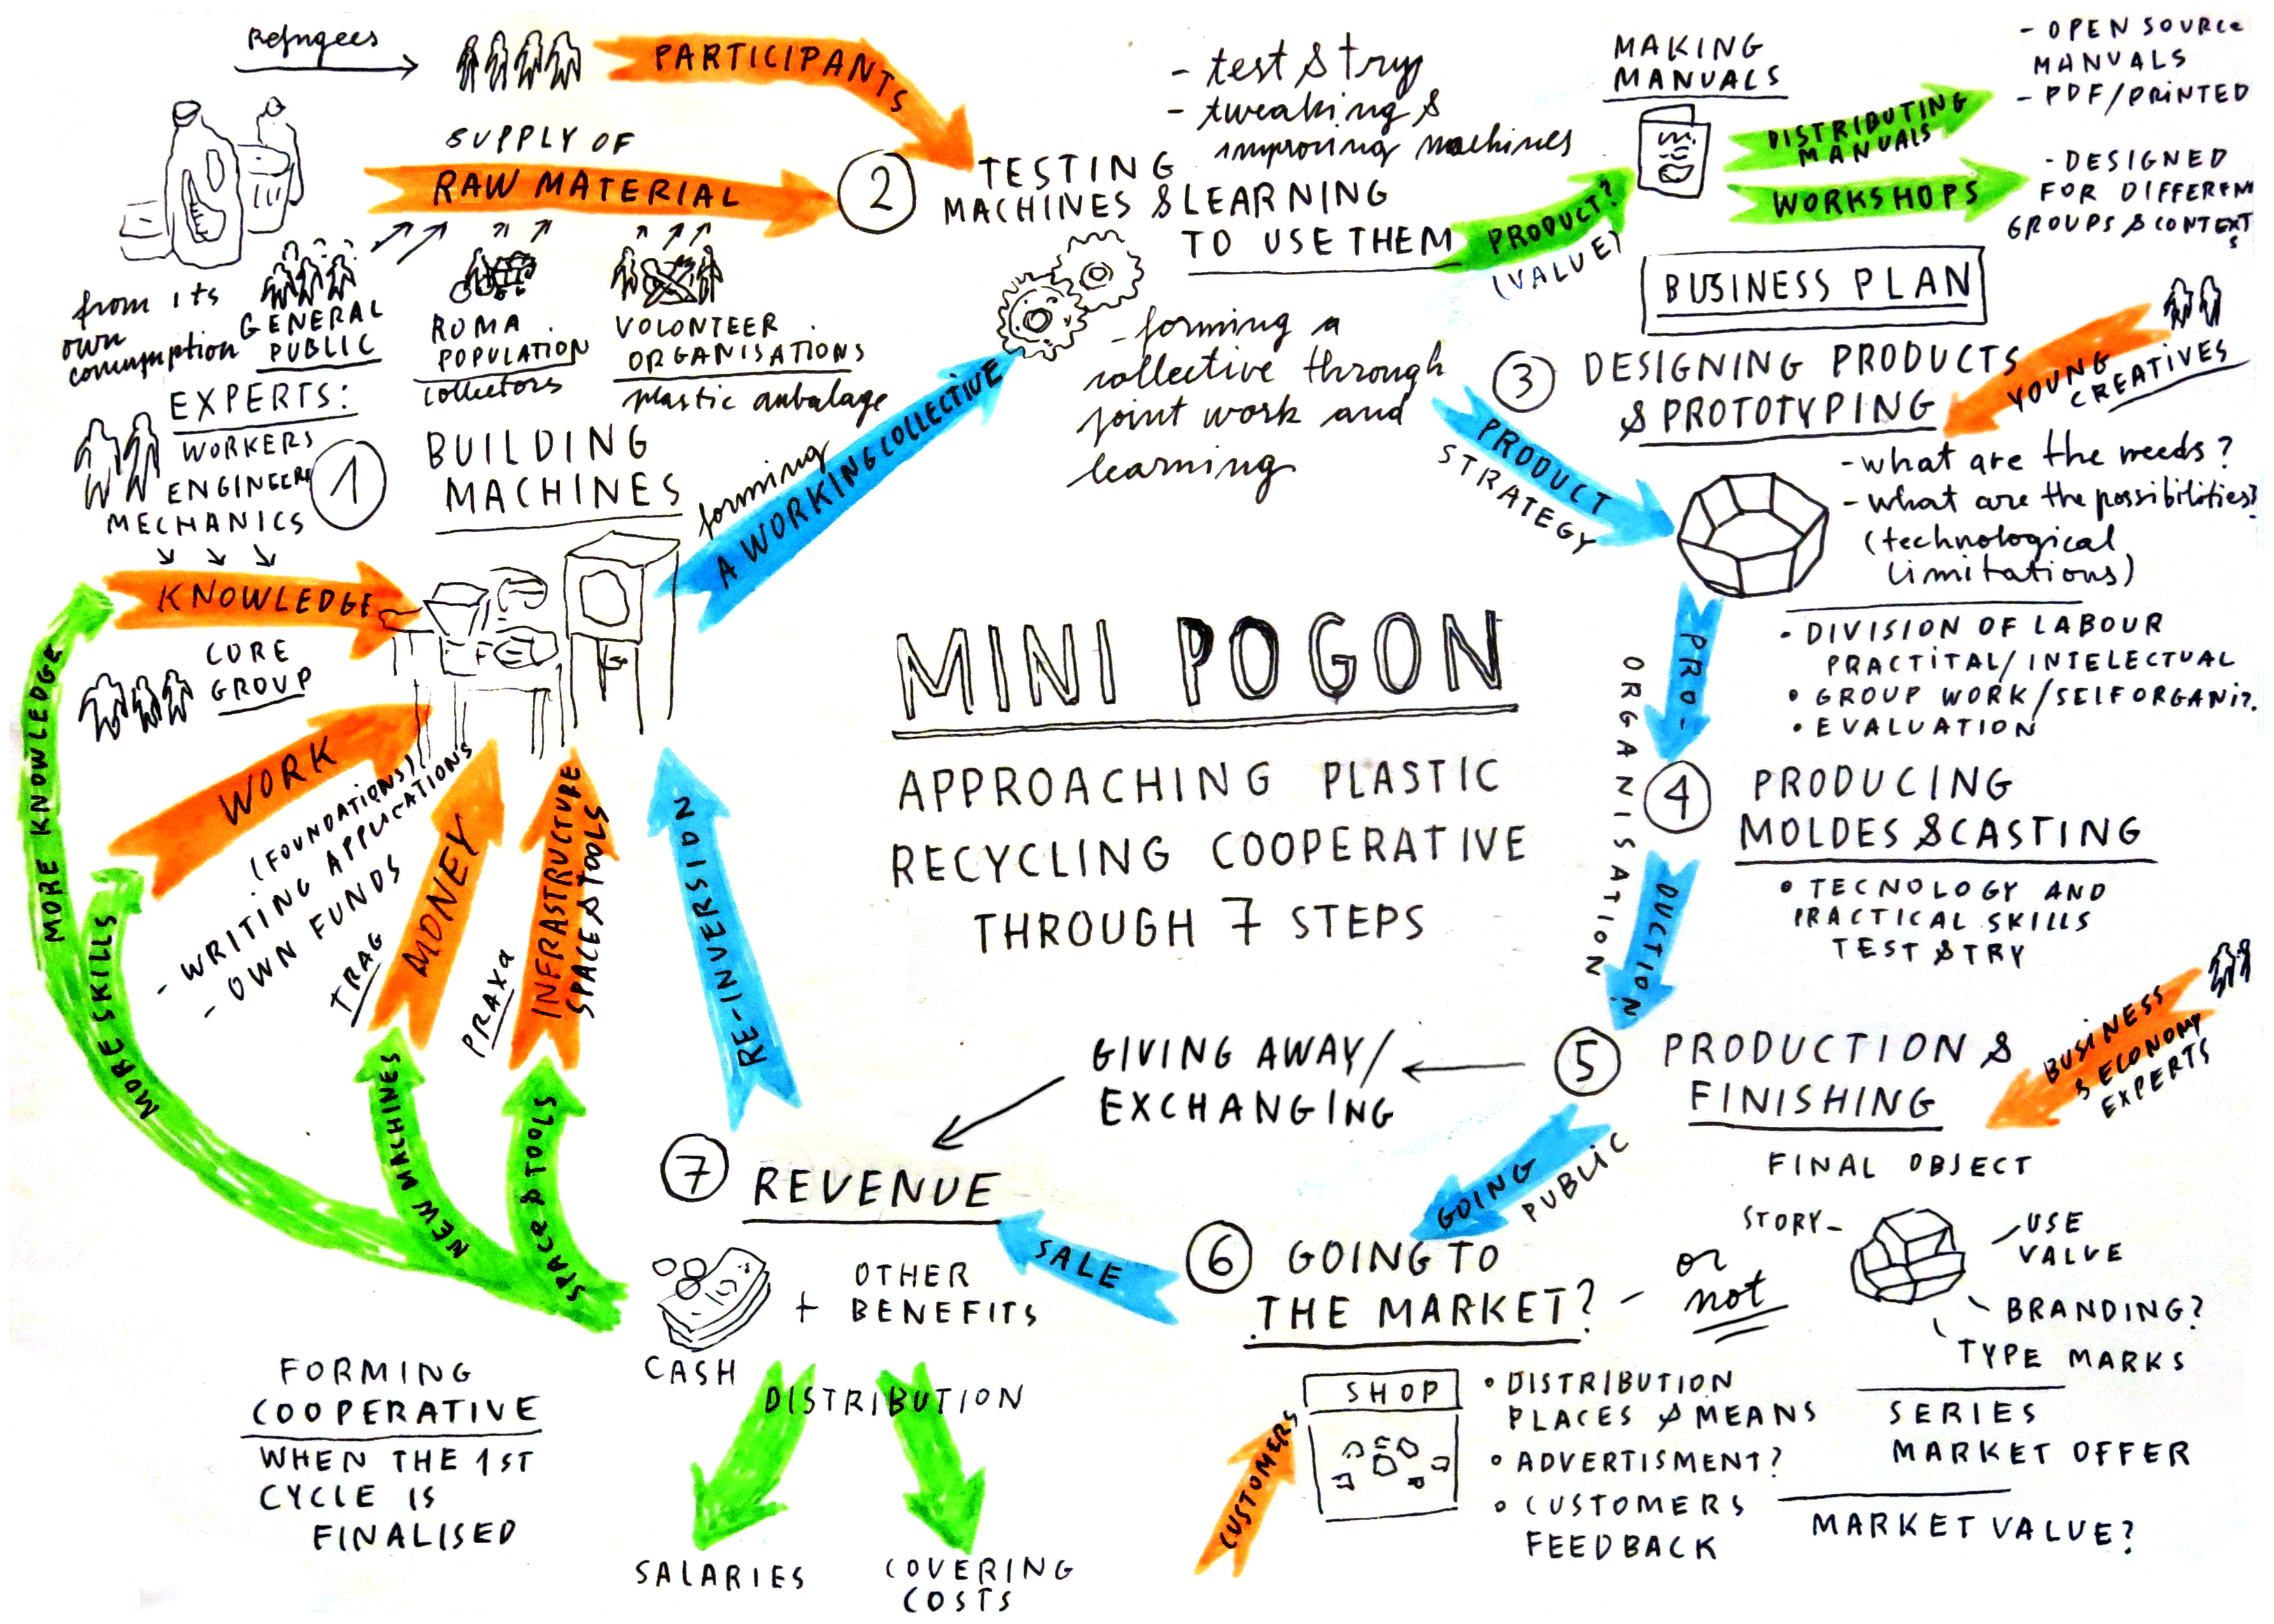 Refugees
PARTICIPANTS
SUPPLY OF
RAW MATERIAL
from its
own
GENERAL
PUBLIC
ROMA
POPULATION
collectors
VOLONTEER
ORGANISATIONS
plastic ambalage
2
TESTING
MACHINES & LEARNING
TO USE THEM
- test & try
- tweaking &
improving machines
- forming a
collective through
joint work and
learning
PRODUCT?
(VALUE)
MAKING
MANUALS
DISTRIBUTING
MANUALS
WORKSHOPS
- OPEN SOURCE
MANUALS
- PDF/PRINTED
- DESIGNED
FOR DIFFEREN
GROUPS & CONTEXT
S
BUSINESS PLAN
EXPERTS:
WORKERS
ENGINEER
MECHANICS
1
BUILDING
MACHINES
KNOWLEDGE
CORE
GROUP
WORK
forming
A WORKING COLLECTIVE
(FOUNDATIONS)
- WRITING APPLICATIONS
- OWN FUNDS
TRAG
MONEY
PRAXA
INFRASTRUCTURE
SPACE & TOOLS
MORE KNOWLEDGE
MORE SKILLS
NEW MACHINES
SPACE & TOOLS
RE-INVERSION
MINI POGON
APPROACHING PLASTIC
RECYCLING COOPERATIVE
THROUGH 7 STEPS
PRODUCT
STRATEGY
3
DESIGNING PRODUCTS
& PROTOTYPING
YOUNG
CREATIVES
- what are the needs?
- what are the possibilities?
(technological
limitations)
- DIVISION OF LABOUR
PRACTITAL/INTELECTUAL
• GROUP WORK/SELFORGANIZ.
• EVALUATION
PRO-
DUCTION
ORGANISATION
4
PRODUCING
MOLDES & CASTING
• TECNOLOGY AND
PRACTICAL SKILLS
TEST & TRY
5
PRODUCTION &
FINISHING
BUSINESS
& ECONOMY
EXPERTS
FINAL OBJECT
STORY-
USE
VALUE
BRANDING?
TYPE MARKS
SERIES
MARKET OFFER
MARKET VALUE?
GIVING AWAY/
EXCHANGING
GOING
PUBLIC
6
GOING TO
THE MARKET? - or
not
SHOP
CUSTOMERS
• DISTRIBUTION
PLACES & MEANS
• ADVERTISMENT?
• CUSTOMERS
FEEDBACK
SALE
7
REVENUE
CASH
+ OTHER
BENEFITS
DISTRIBUTION
SALARIES
COVERING
COSTS
FORMING
COOPERATIVE
WHEN THE 1ST
CYCLE IS
FINALISED